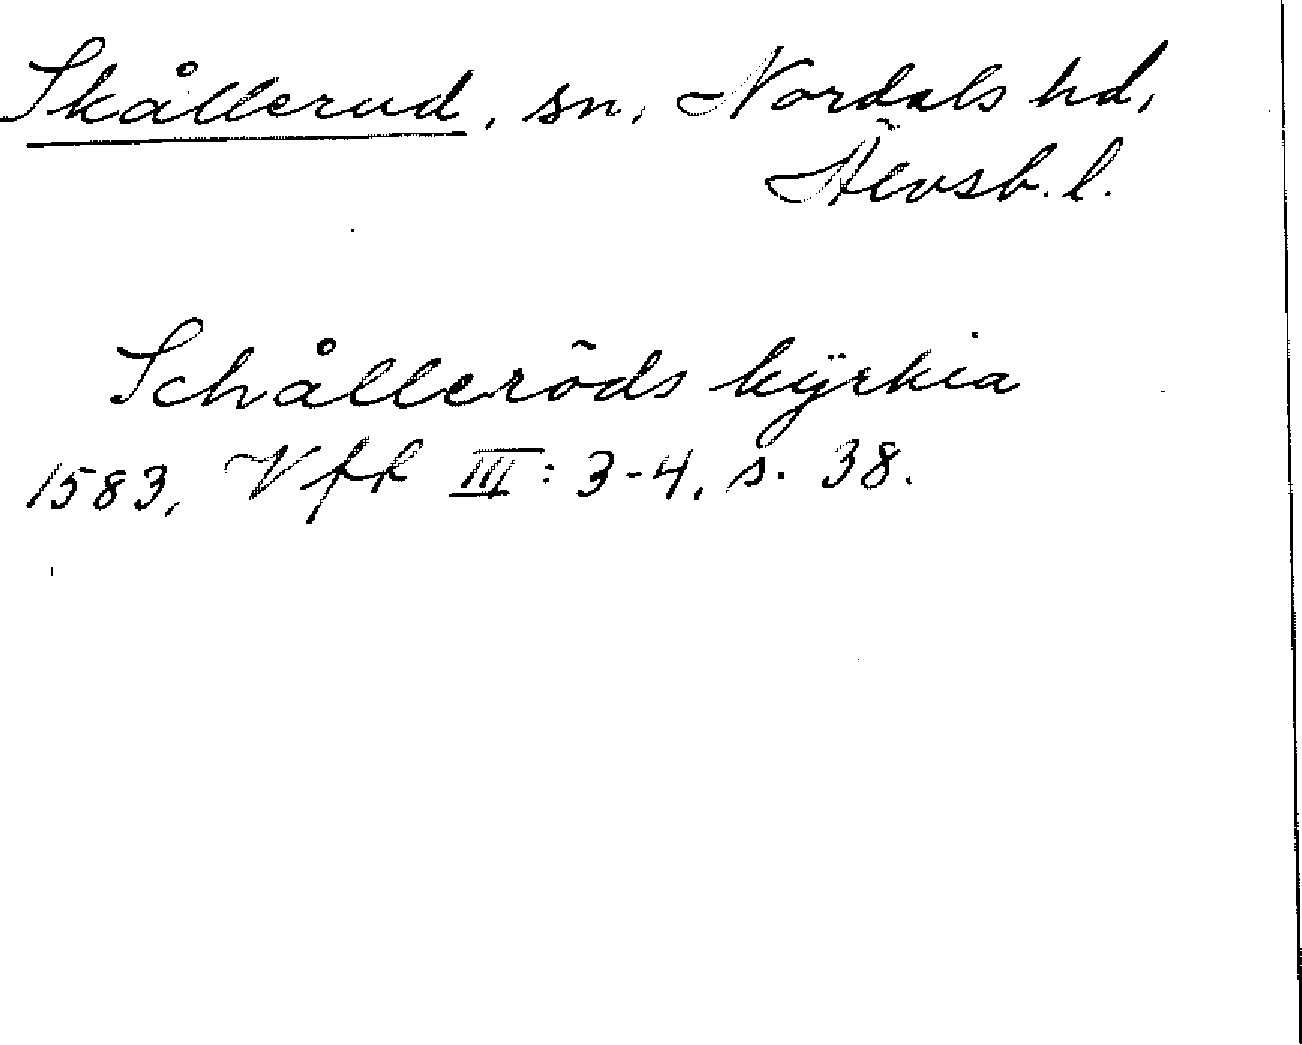 Skållerud, sn, Nordals hd,
Älvsb. l.
Schålleröds kÿrkia
1583, Vff III: 3-4, s. 38.